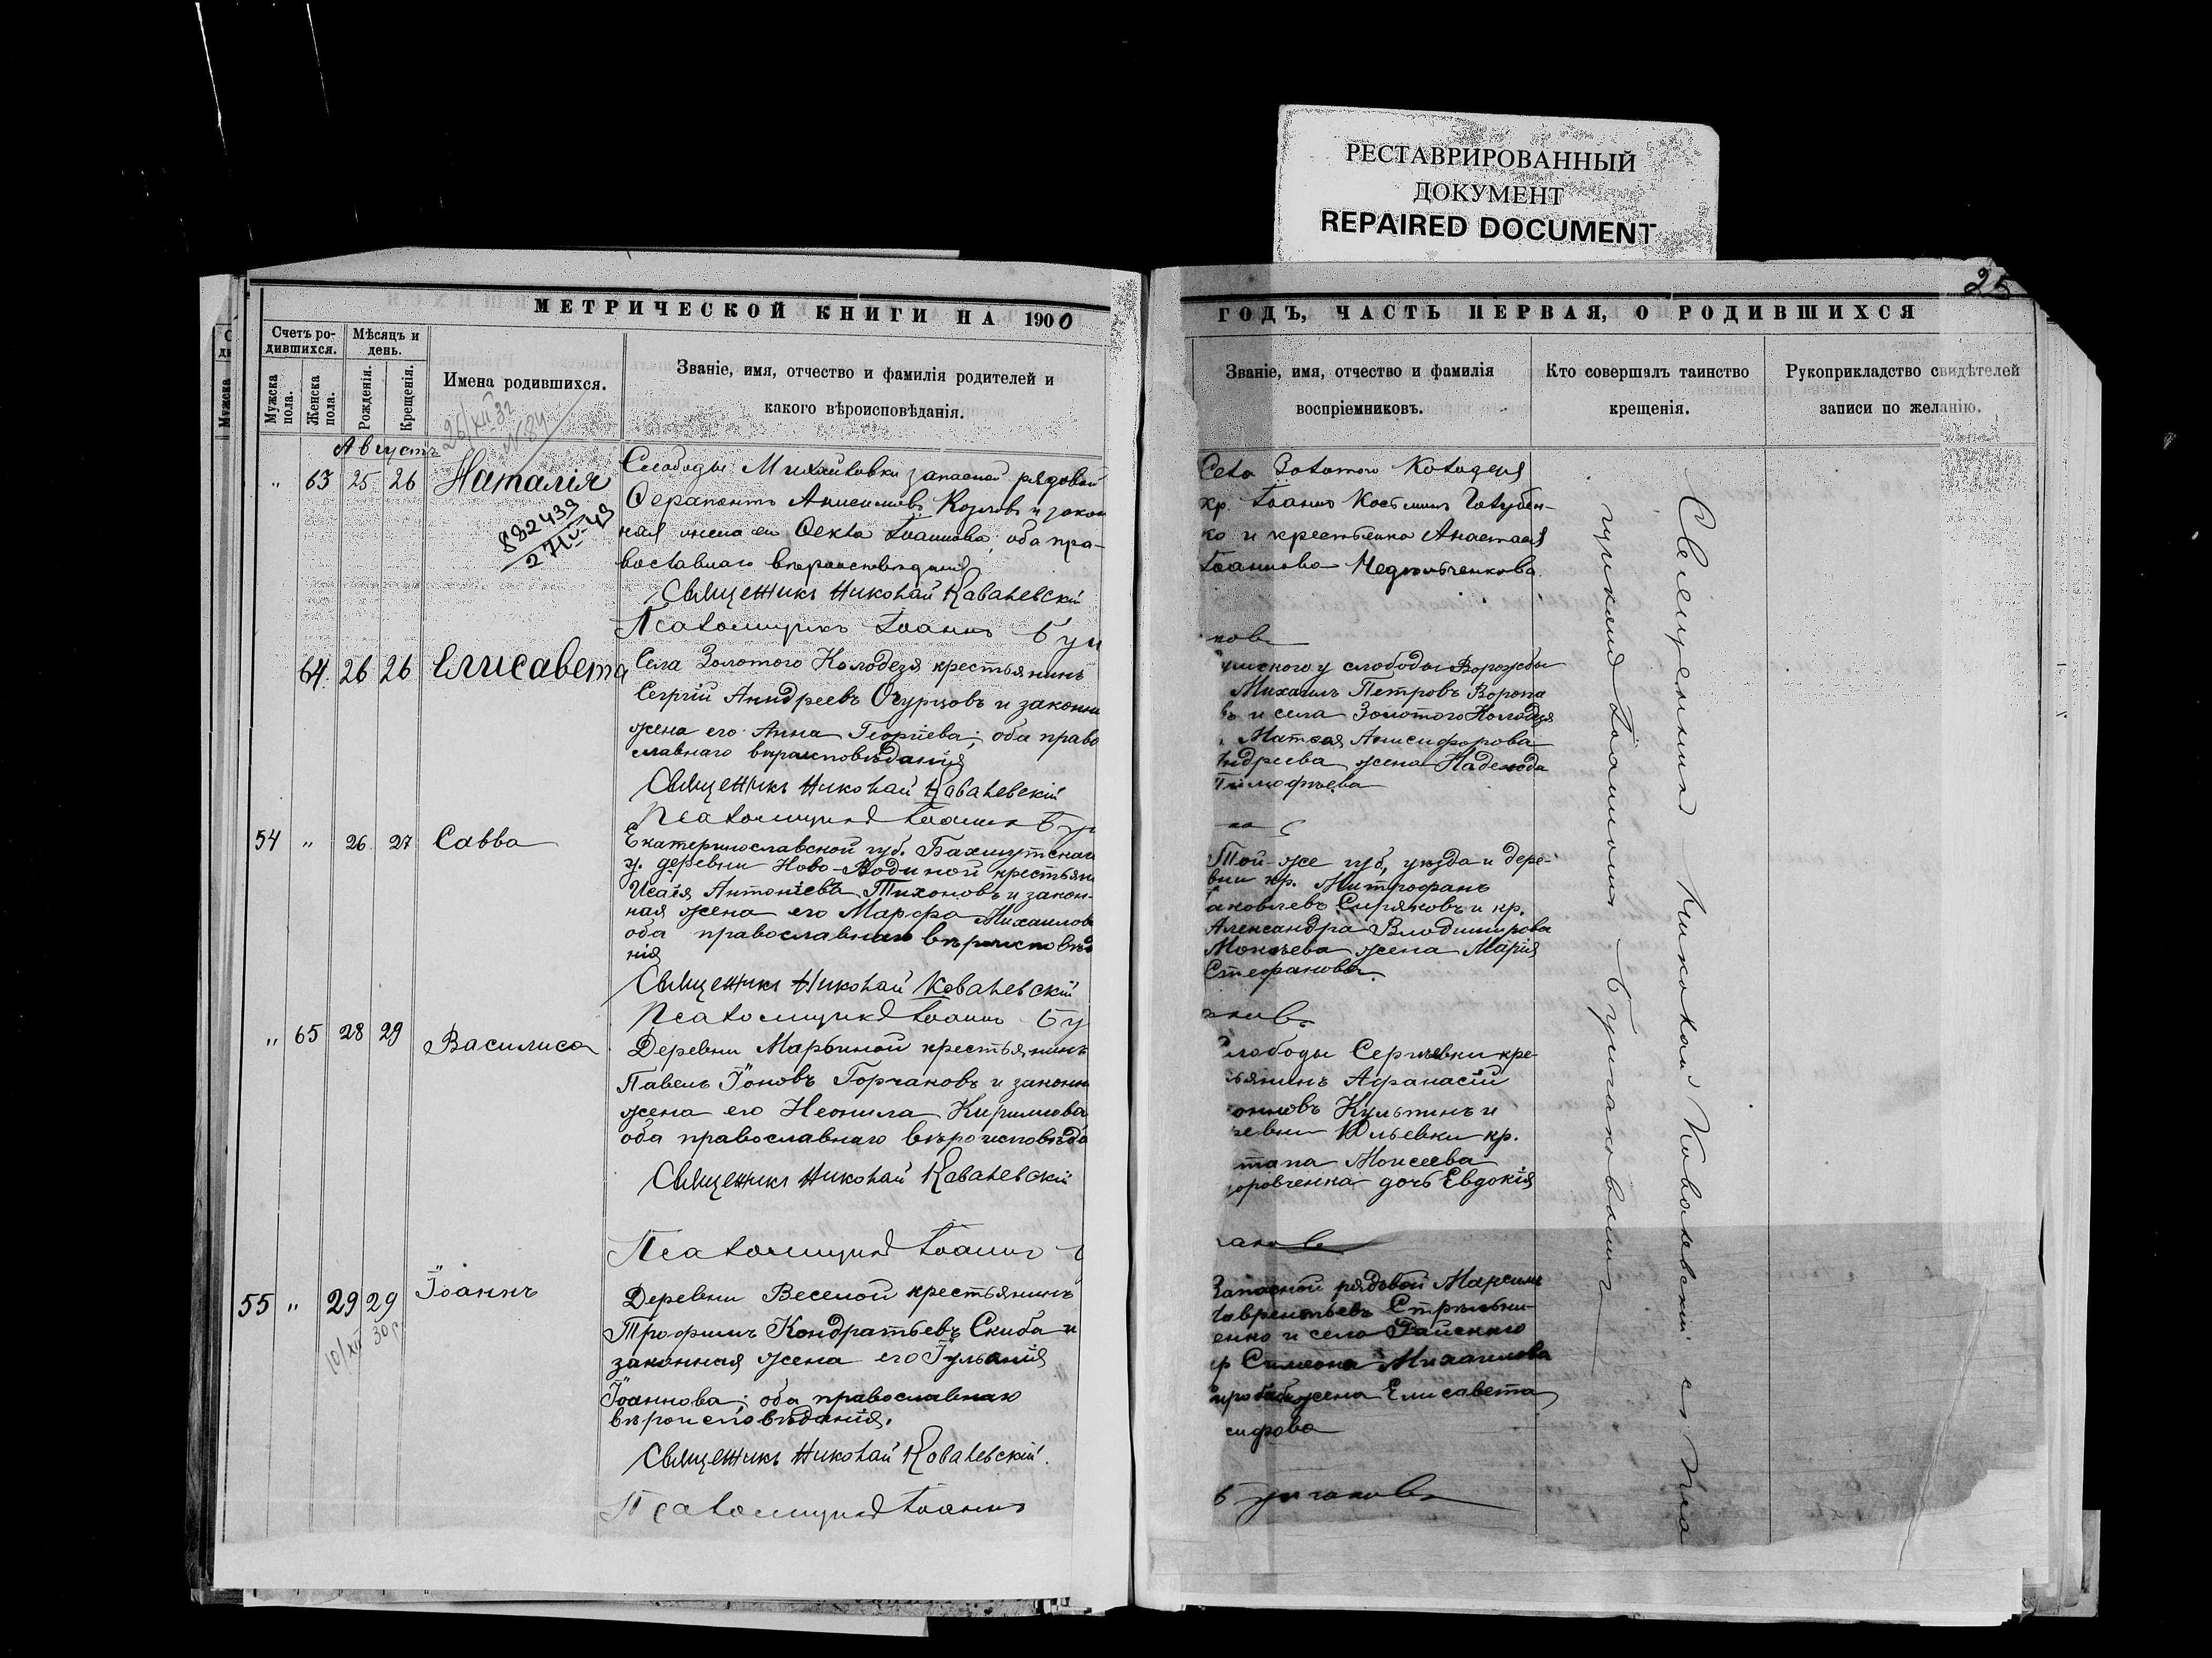 РЕСТАВРИРОВАННЫЙ
ДОКУМЕНТ
REPAIRED DOCUMENT
25
МЕТРИЧЕСКОЙ КНИГИ НА 1900
Счетъ ро-
дившихся.
Мужска
пола.
Женска
пола.
Мѣсяцъ и
день.
Рожденія.
Крещенія.
Имена родившихся.
Званіе, имя, отчество и фамилія родителей и
какого вѣроисповѣданія.
Августъ
63 25 26 Наталія
Слободы Михайловки запасной рядовой
Ферапонтъ Анисимовъ Козловъ и закон
ная жена его Фекла Іоаннова; оба пра-
вославнаго вѣроисповѣданія
Священникъ Николай Ковалевскій
Псаломщикъ Іоаннъ Бу
64. 26 26 Елисавета
Села Золотого Колодезя крестьянинъ
Сергій Андреевъ Огурцовъ и законн
жена его Анна Георгіева; оба право
славнаго вѣроисповѣданія
Священникъ Николай Ковалевскій
Псаломщикъ Іоаннъ Бу
54 " 26 27 Савва
Екатеринославской губ. Бахмутскаго
у. деревни Ново-Водиной крестьян
Исаія Антоніевъ Тихоновъ и закон-
ная жена его Марфа Михаилов
оба православнаго вѣроисповѣд
нія
Священникъ Николай Ковалевскій
Псаломщикъ Іоаннъ Бу
" 65 28 29 Василиса
Деревни Марьиной крестьянинъ
Павелъ Іоновъ Горчаковъ и законн
жена его Неонила Кириллова
оба православнаго вѣроисповѣда
Священникъ Николай Ковалевскій
Псаломщикъ Іоаннъ
55 " 29 29 Іоаннъ
Деревни Веселой крестьянинъ
Трофимъ Кондратьевъ Скиба и
законная жена его Іуліанія
Іоаннова; оба православнаго
вѣроисповѣданія.
Священникъ Николай Ковалевскій.
Псаломщикъ Іоаннъ
ГОДЪ, ЧАСТЬ ПЕРВАЯ, О РОДИВШИХСЯ
Званіе, имя, отчество и фамилія
воспріемниковъ.
Кто совершалъ таинство
крещенія.
Рукоприкладство свидѣтелей
записи по желанію.
Села Золотого Колодезя
кр. Іоаннъ Косминъ Голубен-
ко и крестьянка Анастасія
Іоаннова Недѣльченкова.
ковъ
умскаго у слободы Ворожбы
Михаилъ Петровъ Воропа
въ и села Золотого Колодезя
Анисифорова
ндреева жена Надежда
Тимофѣева
Той-же губ., уѣзда и дере-
вни кр. Митрофанъ
аковлевъ Сиряковъ и кр.
Александра Владимирова
Мокѣева жена Марія
Стефанова.
Слободы Сергѣевки кре
ьянинъ Афанасій
Кулытинъ и
ревни Юльевки кр.
Моисеева
доровченка дочь Евдокія
Запасной рядовой Марсимъ
Лаврентьевъ Стрѣльни-
енко и села Райскаго
кр Симеона Михаилова
жена Елисавета
сифова
Бунчаковъ
Священникъ Николай Ковалевскій съ Пса